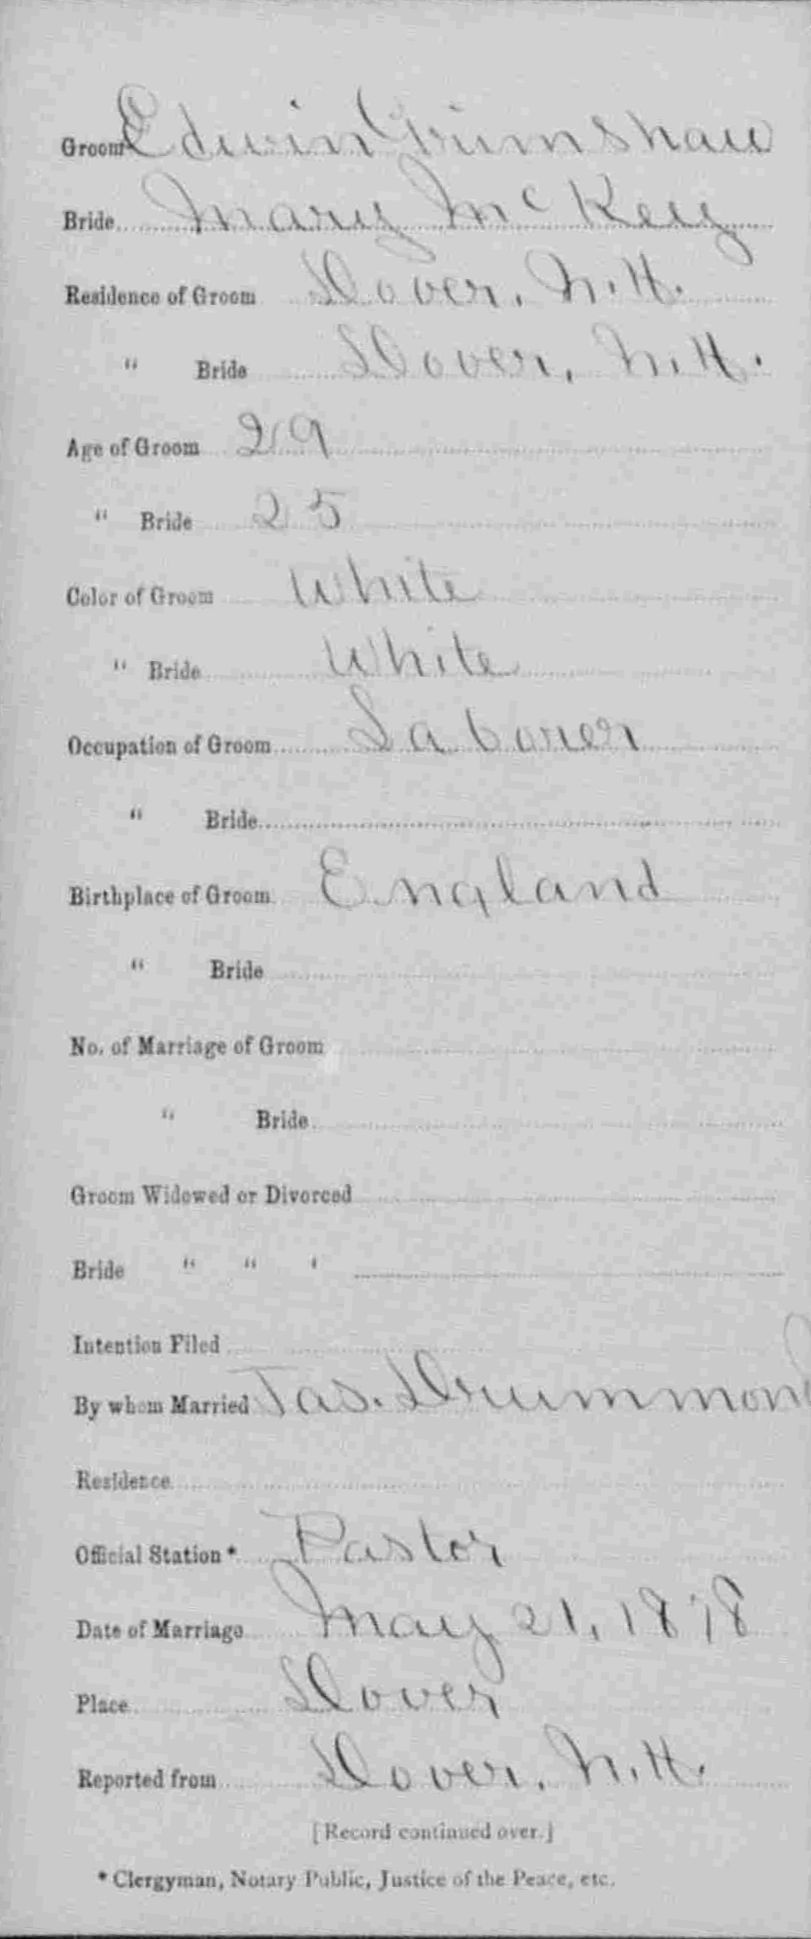 Groom Edwin Grimshaw
Bride Mary McKey
Residence of Groom Dover, N.H.
" Bride Dover, N.H.
Age of Groom 29
" Bride 25
Color of Groom White
" Bride White
Occupation of Groom Laborer
" Bride
Birthplace of Groom England
" Bride
No. of Marriage of Groom
" Bride
Groom Widowed or Divorced
Bride " " "
Intention Filed
By whom Married Jas. Drummond
Residence
Official Station* Pastor
Date of Marriage May 21, 1878
Place Dover
Reported from Dover, N.H.
[Record continued over.]
* Clergyman, Notary Public, Justice of the Peace, etc.